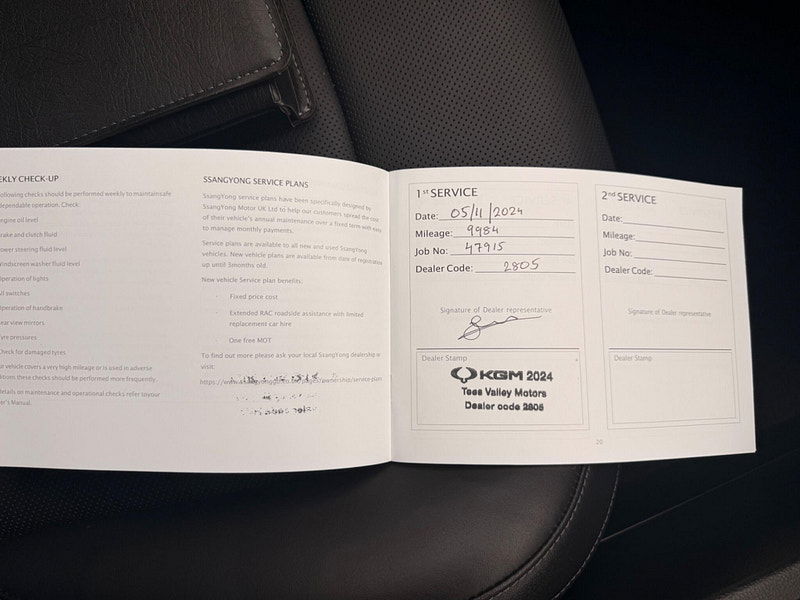 EKLY CHECK-UP
ollowing checks should be performed weekly to maintain safe
dependable operation. Check:
engine oil level
rake and clutch fluid
ower steering fluid level
Windscreen washer fluid level
Operation of lights
All switches
Operation of handbrake
ear view mirrors
yre pressures
Check for damaged tyres
ur vehicle covers a very high mileage or is used in adverse
ditions these checks should be performed more frequently.
details on maintenance and operational checks refer to your
er's Manual.
SSANGYONG SERVICE PLANS
SsangYong service plans have been specifically designed by
SsangYong Motor UK Ltd to help our customers spread the cost
of their vehicle's annual maintenance over a fixed term with easy
to manage monthly payments.
Service plans are available to all new and used SsangYong
vehicles. New vehicle plans are available from date of registration
up until 3months old.
New vehicle Service plan benefits:
· Fixed price cost
· Extended RAC roadside assistance with limited
replacement car hire
· One free MOT
To find out more please ask your local SsangYong dealership or
visit:
1st SERVICE
Date: 05/11/2024
Mileage: 9984
Job No: 47915
Dealer Code: 2805
Signature of Dealer representative
Dealer Stamp
KGM 2024
Tees Valley Motors
Dealer code 2805
2nd SERVICE
Date:
Mileage:
Job No:
Dealer Code:
Signature of Dealer representative
Dealer Stamp
20